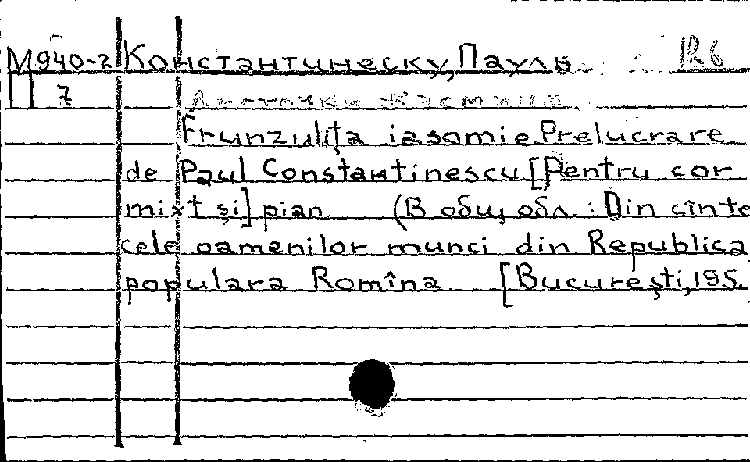 М940-2 Константинеску, Пауль
7 Листочки жасмина
Frunzulița iasomie. Prelucrare
de Paul Constantinescu [Pentru cor
mixt și] pian (В общ. обл.: Din cînte
cele oamenilor munci din Republica
populara Romîna [București, 195